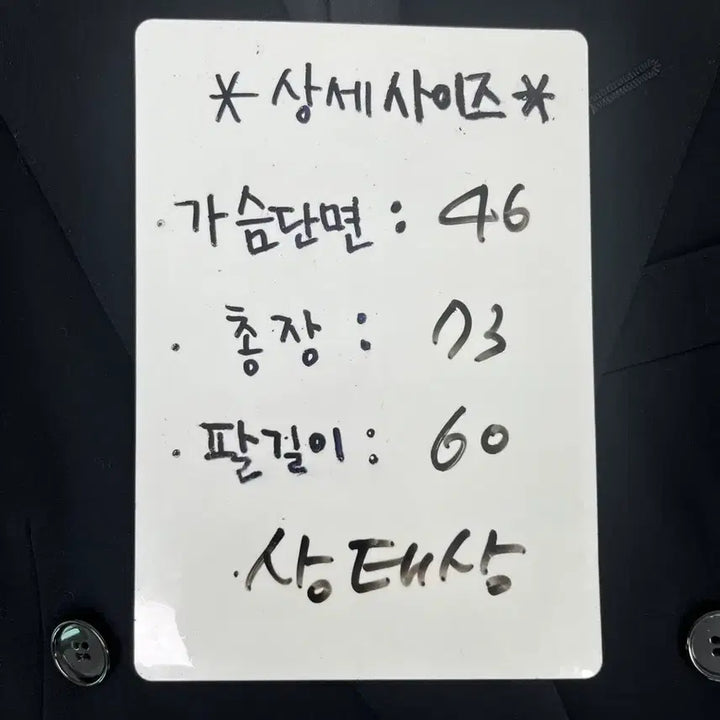 *상세사이즈*
· 가슴단면 : 46
· 총장 : 73
· 팔길이 : 60
· 상태상